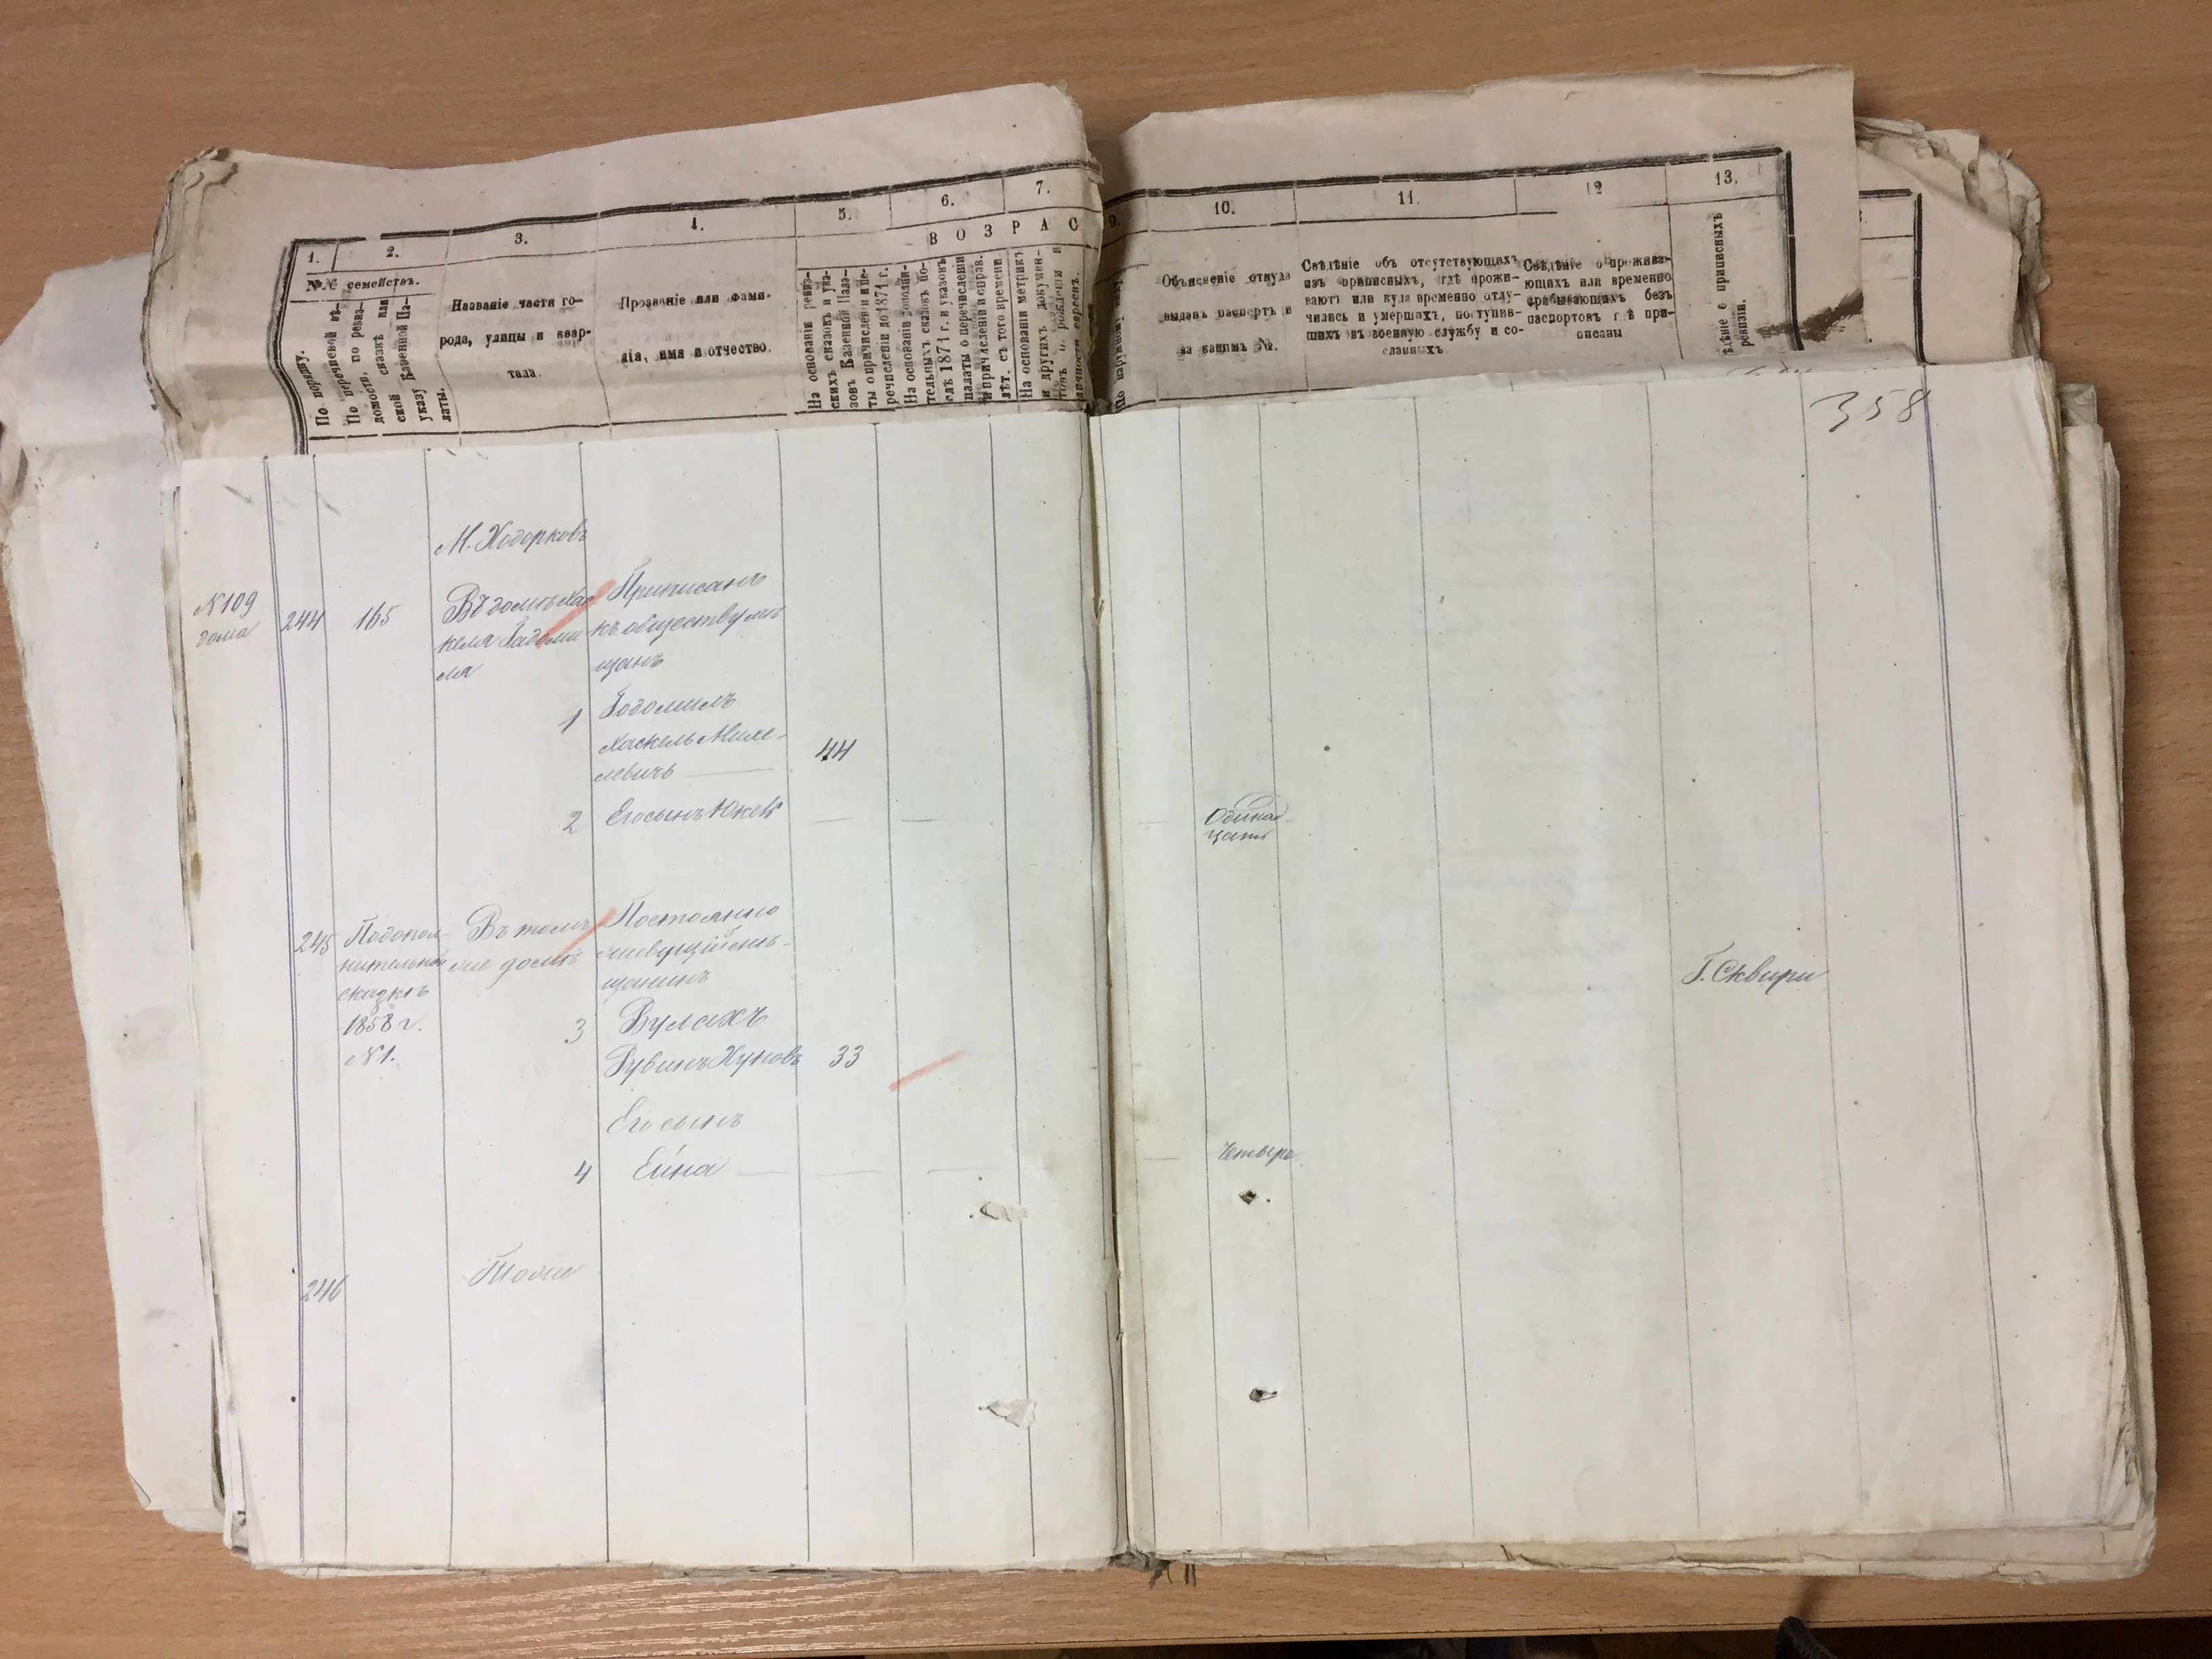 1.
2.
3.
4.
5.
6.
7.
№№ семействъ.
В О З Р А С
По порядку.
По перечневой вѣ-
домости, по ревиз-
ской сказкѣ или
указу Казенной Па-
латы.
Названіе части го-
рода, улицы и квар-
тала.
Прозваніе или фами-
лія, имя и отчество.
На основаніи ревиз-
скихъ сказокъ и ука-
зовъ Казенной Пала-
ты о причисленіи и пе-
речисленіи до 1871 г.
На основаніи дополни-
тельныхъ сказокъ по-
слѣ 1871 г. и указовъ
палаты о перечисленіи
и причисленіи и справ.
лѣт. съ того времени.
На основаніи метрикъ
и другихъ докумен-
товъ о рожденіи и
личности евреевъ.
9.
10.
11.
12
13.
По наружному виду
Объясненіе откуда
выданъ паспортъ и
за какимъ №.
Свѣдѣніе объ отсутствующихъ
изъ приписныхъ, гдѣ прожи-
ваютъ или куда временно отлу-
чились и умершихъ, поступив-
шихъ въ военную службу и со-
сланныхъ
Свѣдѣніе о прожива-
ющихъ или временно
прибывающихъ безъ
паспортовъ гдѣ при-
писаны
Свѣдѣніе о приписныхъ
ревизіи.
358
М. Ходорковъ
№109
дома
244
165
Въ домѣ Хас
келя Гадоми
ля
Приписанъ
къ обществу мѣ
щанъ
1
Годомилъ
Хаскель Михе-
левичъ
44
2
Его сынъ Юкев
Одинад-
цать
245
По допол-
нительной
сказкѣ
1858 г.
№1.
Въ томъ
же домѣ
Постоянно
живущій мѣ-
щанинъ
Г. Сквири
3
Вулахъ
Рувинъ Хуновъ
33
Его сынъ
4
Ейна
Четыре
246
Тоже